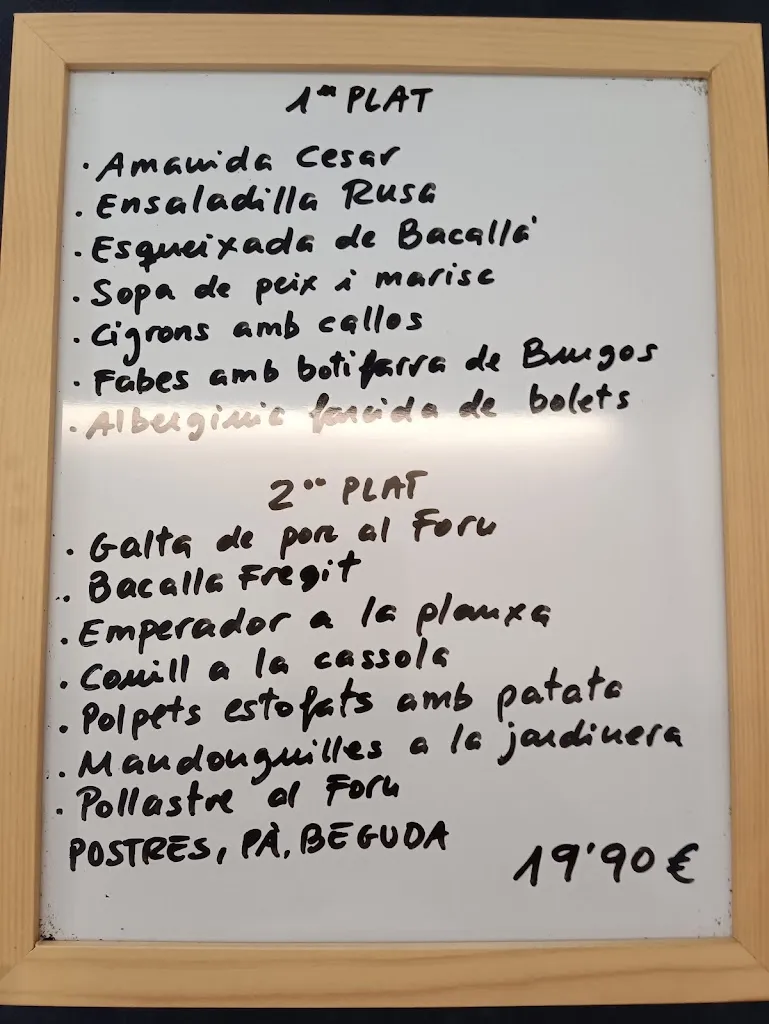 1er PLAT
· Amanida Cesar
· Ensaladilla Rusa
· Esqueixada de Bacallà
· Sopa de peix i marisc
· Cigrons amb callos
· Fabes amb botifarra de Burgos
· Alberginia farcida de bolets
2on PLAT
· Galta de porc al Forn
· Bacalla Fregit
· Emperador a la planxa
· Conill a la cassola
· Polpets estofats amb patata
· Mandonguilles a la jardinera
· Pollastre al Forn
POSTRES, PÀ, BEGUDA
19'90 €